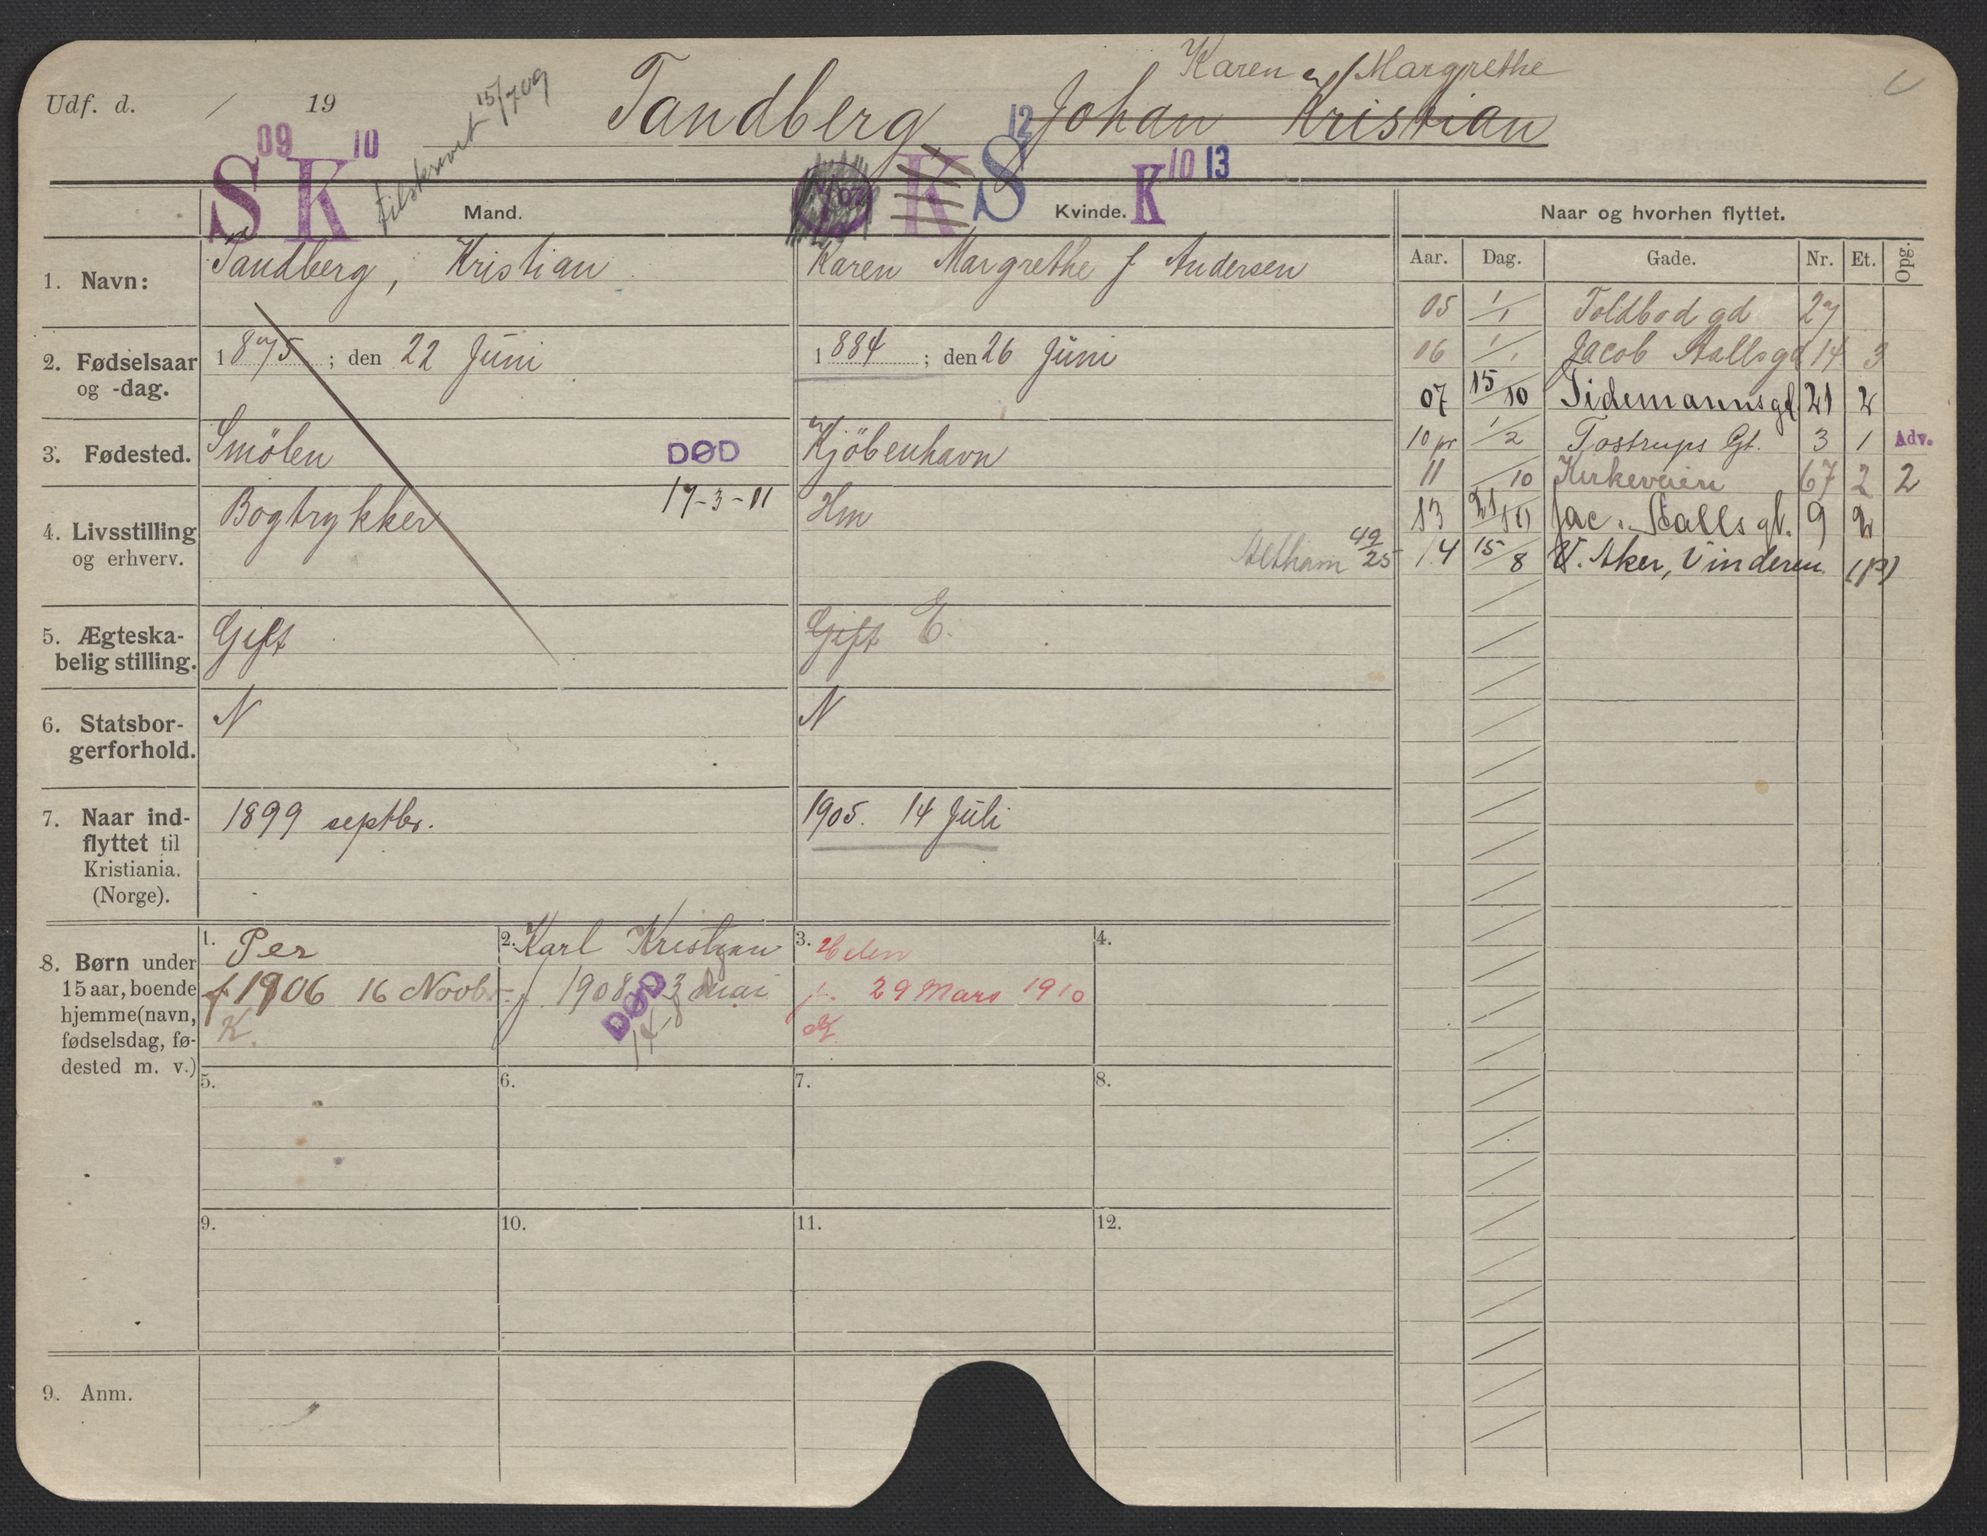 Karen Margrethe
Udf. d. / 19
tilskrevet 15/7 09
Tandberg, Johan Kristian
S 09 K 10
K S 12 K 10 13
Mand.
Kvinde.
Naar og hvorhen flyttet.
Aar. Dag. Gade. Nr. Et. Opg.
1. Navn: Tandberg, Kristian
Karen Margrethe f Andersen
2. Fødselsaar og -dag.
1875; den 22 Juni
1884; den 26 Juni
3. Fødested.
Smölen
DØD
17-3-11
Kjöbenhavn
4. Livsstilling og erhverv.
Bogtrykker
Hm
49/25
5. Ægteska-
belig stilling.
Gift
Gift E.
6. Statsbor-
gerforhold.
N
N
7. Naar ind-
flyttet til
Kristiania.
(Norge).
1899 septbr.
1905. 14 Juli
05 1/1 Toldbodgd 27
06 1/1 Jacob Aallsgd 14 3
07 15/10 Tidemannsgt 21 2
10 pr 1/2 Tostrups Gt. 3 1 Adv.
11 /10 Kirkeveien 67 2 2
13 21/10 Jac. Aallsgt. 9 2
14 15/8 V. Aker, Vinderen (P)
8. Børn under
15 aar, boende
hjemme (navn,
fødselsdag, fø-
dested m. v.)
1. Per
f 1906 16 Novbr.
K.
2. Karl Kristian
f 1908 3 mai
DØD
3. Helen
f. 29 Mars 1910
4.
5.
6.
7.
8.
9.
10.
11.
12.
9. Anm.